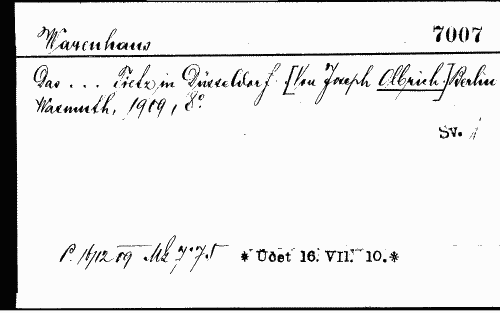 Warenhaus 7007
Das ... Tietz in Düsseldorf. [Von Joseph Olbrich.] Berlin
Wasmuth, 1909, 8°.
Sv. 1
P. 16/12 09 Mk 7·75 * Účet 16. VII. 10.*